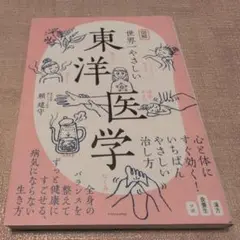 図解
世界一やさしい
東洋医学
頼建守
心と体に
すぐ効く!
いちばん
やさしい
治し方
全身の
バランスを
整えて
ずっと健康に
すごせる、
病気にならない
生き方
漢方
食養生
ツボ